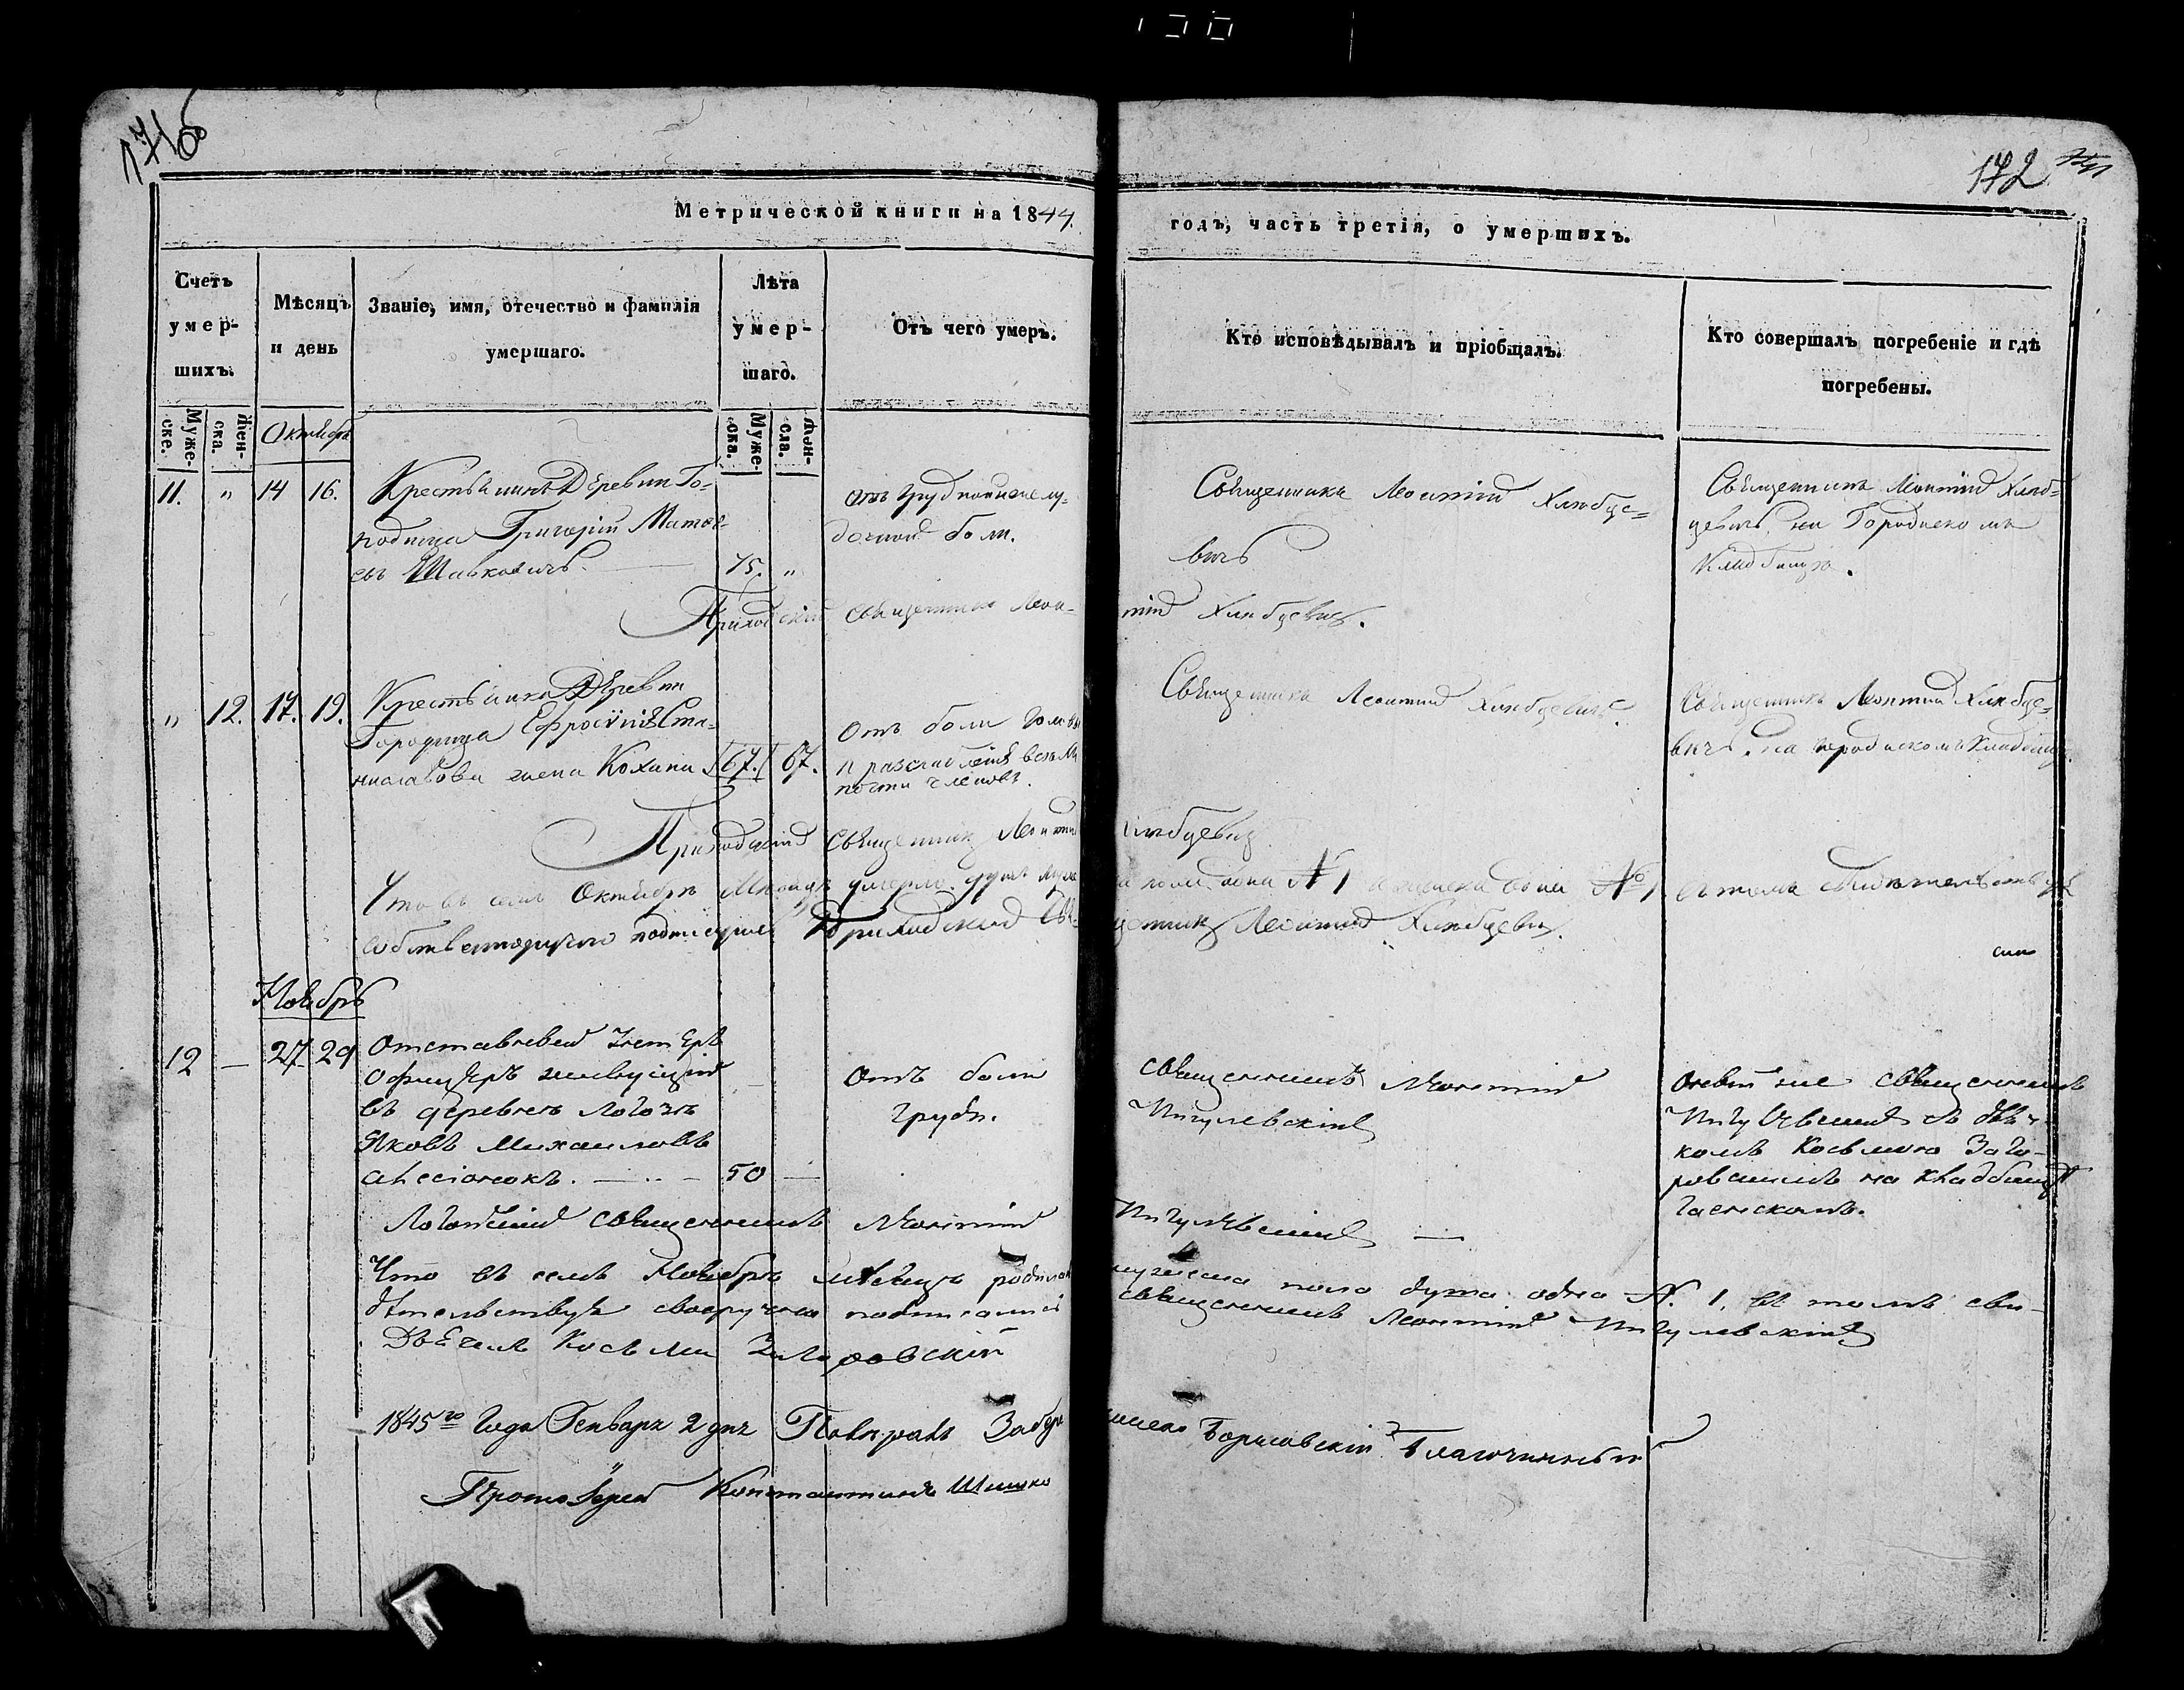 171об
172
Метрической книги на 1844.
годъ, часть третія, о умершихъ.
Счетъ умер-шихъ.
Мѣсяцъ и день
Званіе, имя, отечество и фамилія умершаго.
Лѣта умер-шаго.
Отъ чего умеръ.
Кто исповѣдывалъ и пріобщалъ.
Кто совершалъ погребеніе и гдѣ погребены.
Муже-ске. Жен-ска. Октябрь Муже-ска. Жен-ска.
11. " 14 16.
Крестьянинъ Деревни Го-
родища Григорій Матѳе-
евъ Шавковичъ. 75. "
Отъ грудной и желу-
дочной боли.
Священникъ Леонтій Хлюбце-
вичъ
Священникъ Леонтій Хлюб-
цевичъ, на Городиском
Кладбищѣ.
Приходскій Священникъ Леон-
тій Хлюбцевич.
" 12. 17. 19.
Крестьянка Деревни
Городища Ефросинія Ста-
ниславова жена Кохана 67. 67.
Отъ боли головы
и разслабленія всѣхъ
почти членовъ.
Священникъ Леонтій Хлюбцевичъ.
Священникъ Леонтій Хлюбце-
вичъ. на городискомъ Кладбищѣ
Приходскій Священник Леонтій
Хлюбцевич
Что въ семъ Октябрѣ Мѣсяцѣ умерло душъ муже
ска пола одна №1 и женска одна №1 въ томъ свидѣтельствую
собственноручно подписуюсь Приходской Свя-
щенник Леонтій Хлюбцевич.
Ноябрь
12 — 27 29
Отставной Унтеръ
Офицеръ живущій
въ деревнѣ Логозѣ
Яковъ Михаиловъ
50 —
Отъ боли
груди.
Священникъ Леонтій
Пигулевскій
Оный же священникъ
Пигулевскій съ дья-
комъ Косьмою Заго-
ровскимъ на кладбищѣ
Логойскій священникъ Леонтій
Пигулевскій —
Что въ семъ Ноябрѣ мѣсяцѣ родилась
мужеска пола душа одна №. 1, въ томъ сви-
дѣтельствую своеручно подписаніемъ
священникъ Леонтій Пигулевскій
Дьячекъ Косьма Загоровскій
1845го года Генваря 2 дня Повѣрялъ
Борисовскій Благочинный
Протоіерей Константинъ Шишко